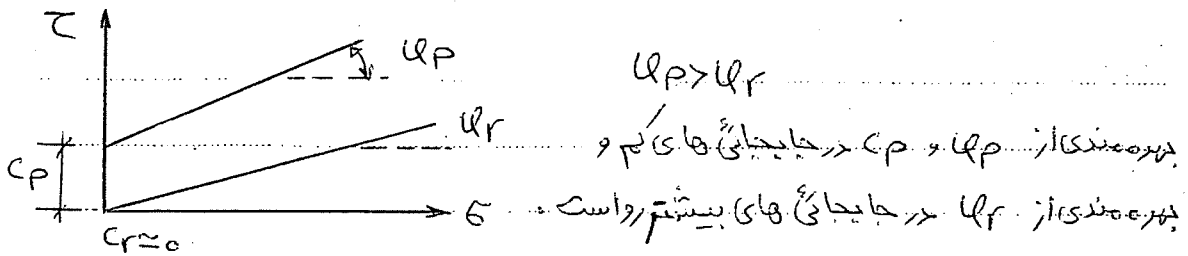 τ
φp
φp>φr
φr
بهره‌مندی از φp و cp در جابجائی های کم و
cp
بهره‌مندی از φr در جابجائی های بیشتر رواست.
σ
cr≃0